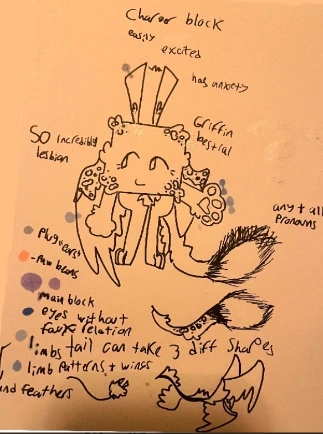 Charor block
easily
excited
has anxiety
Griffin
bestial
So incredibly
lesbian
any + all
pronouns
Plug "ears"
- Paw beans
main block
eyes without
relation
limbs tail can take 3 diff shapes
limb patterns + wings
and feathers